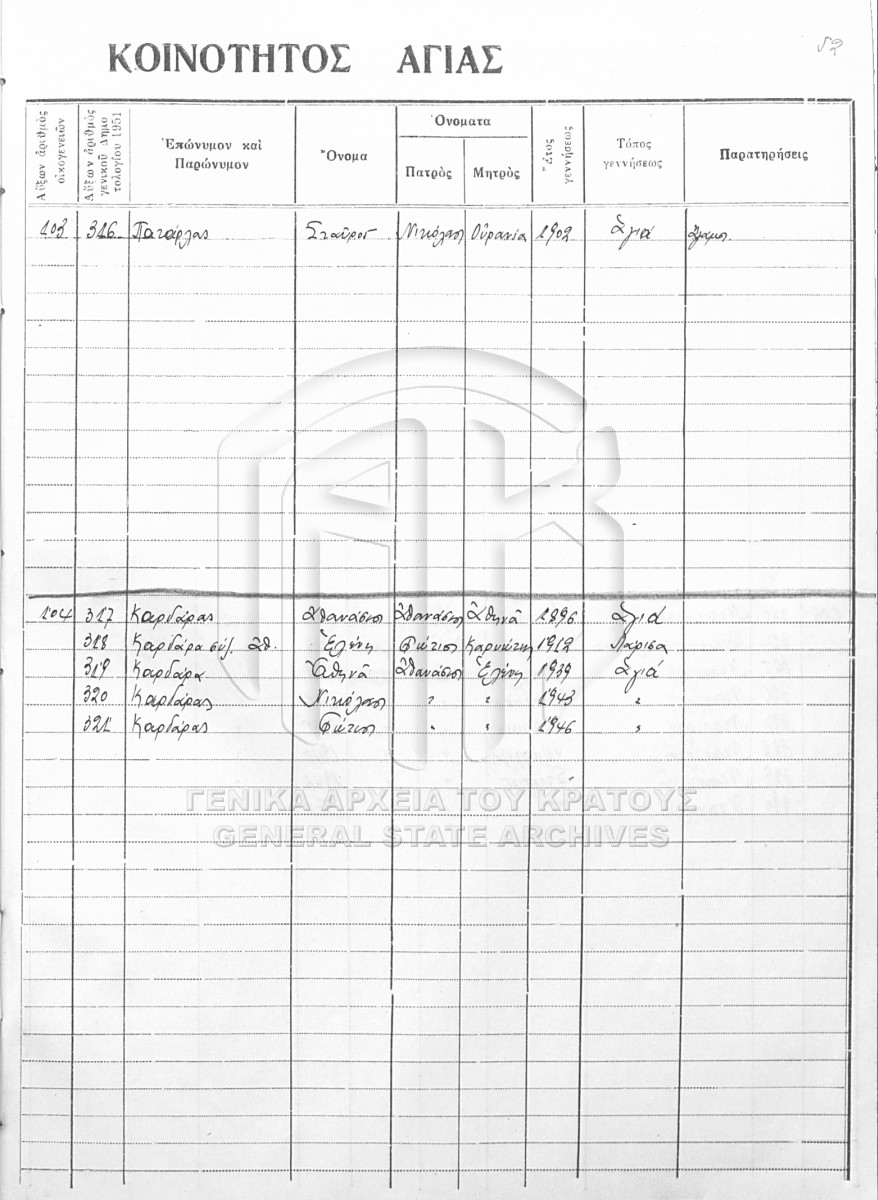 52
ΚΟΙΝΟΤΗΤΟΣ ΑΓΙΑΣ
Αὔξων ἀριθμὸς οἰκογενειῶν
Αὔξων ἀριθμὸς γενικοῦ Δημοτολογίου 1951
Ἐπώνυμον καὶ Παρώνυμον
Ὄνομα
Ὀνοματα
Πατρὸς
Μητρὸς
Ἔτος γεννήσεως
Τόπος γεννήσεως
Παρατηρήσεις
103 316 Σταῦρος Νικόλαος Οὐρανία 1902 Ἁγιά
104 317 Καρδάρας Ἀθανάσιος Ἀθανάσιος Ἀθηνᾶ 1896 Ἁγιά
318 Καρδάρα συζ. Ἀθ. Ἑλένη Φώτιος 1912 Λάρισα
319 Καρδάρα Ἀθηνᾶ Ἀθανάσιος Ἑλένη 1939 Ἁγιά
320 Καρδάρας Νικόλαος " " 1943 "
321 Καρδάρας Φώτιος " " 1946 "
ΓΕΝΙΚΑ ΑΡΧΕΙΑ ΤΟΥ ΚΡΑΤΟΥΣ
GENERAL STATE ARCHIVES